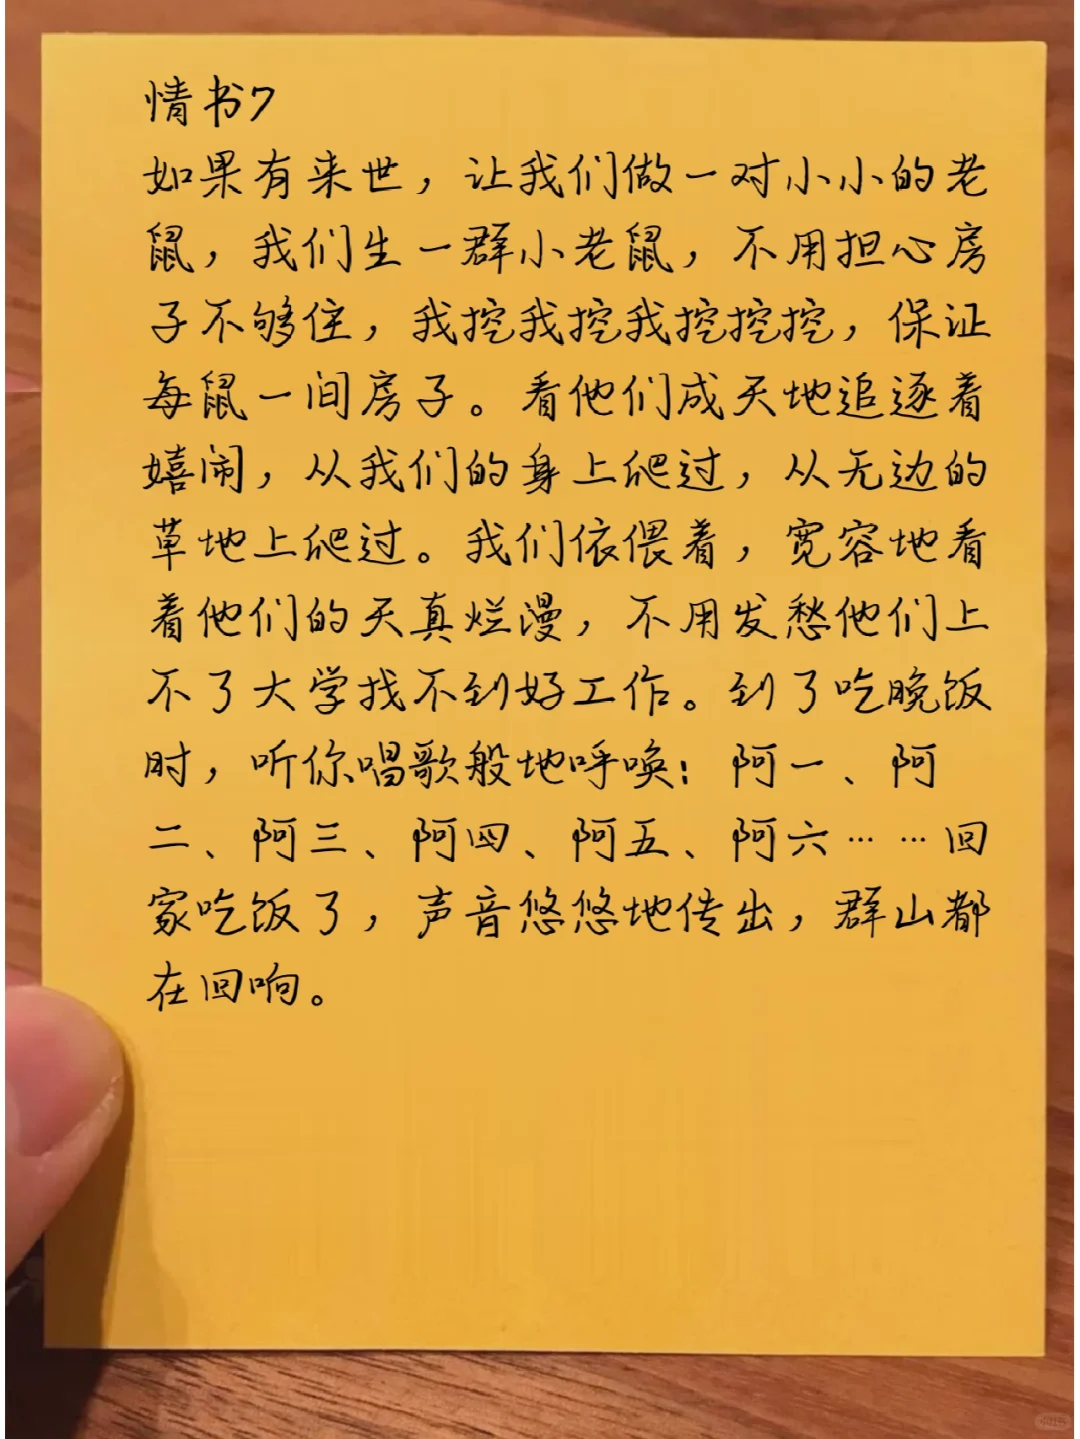 情书7
如果有来世，让我们做一对小小的老
鼠，我们生一群小老鼠，不用担心房
子不够住，我挖我挖我挖挖挖，保证
每鼠一间房子。看他们成天地追逐着
嬉闹，从我们的身上爬过，从无边的
草地上爬过。我们依偎着，宽容地看
着他们的天真烂漫，不用发愁他们上
不了大学找不到好工作。到了吃晚饭
时，听你唱歌般地呼唤：阿一、阿
二、阿三、阿四、阿五、阿六……回
家吃饭了，声音悠悠地传出，群山都
在回响。